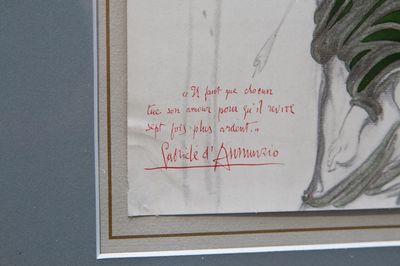 « Il faut que chacun
tue son amour pour qu'il revive
sept fois plus ardent. »
Gabriele d'Annunzio